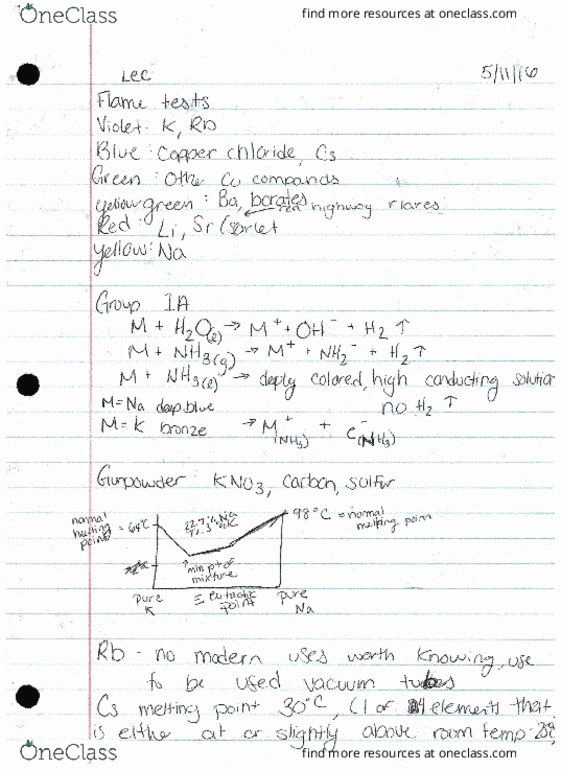 OneClass
find more resources at oneclass.com
Lec 5/11/16
Flame tests
Violet: K, Rb
Blue: Copper chloride, Cs
Green: Othe Cu compands
yellow green: Ba, borates
red highway flares
Red: Li, Sr (scarlet
yellow: Na
Group IA
M + H₂O(l) → M⁺ + OH⁻ + H₂ ↑
M + NH₃(g) → M⁺ + NH₂⁻ + H₂ ↑
M + NH₃(l) → deply colored, high conducting solution
M=Na deep blue no H₂ ↑
M=K bronze → M⁺(NH₃) + e⁻(NH₃)
Gunpowder: KNO₃, carbon, sulfur
normal melting point = 64°C
22.7% Na
98°C = normal melting point
↑ min pt of mixture
pure K ≡ eutectic point pure Na
Rb - no modern uses worth knowing, use
to be used vacuum tubes
Cs melting point 30°C, (1 of 4 elements that
is eithe at or slightly above room temp
OneClass
find more resources at oneclass.com